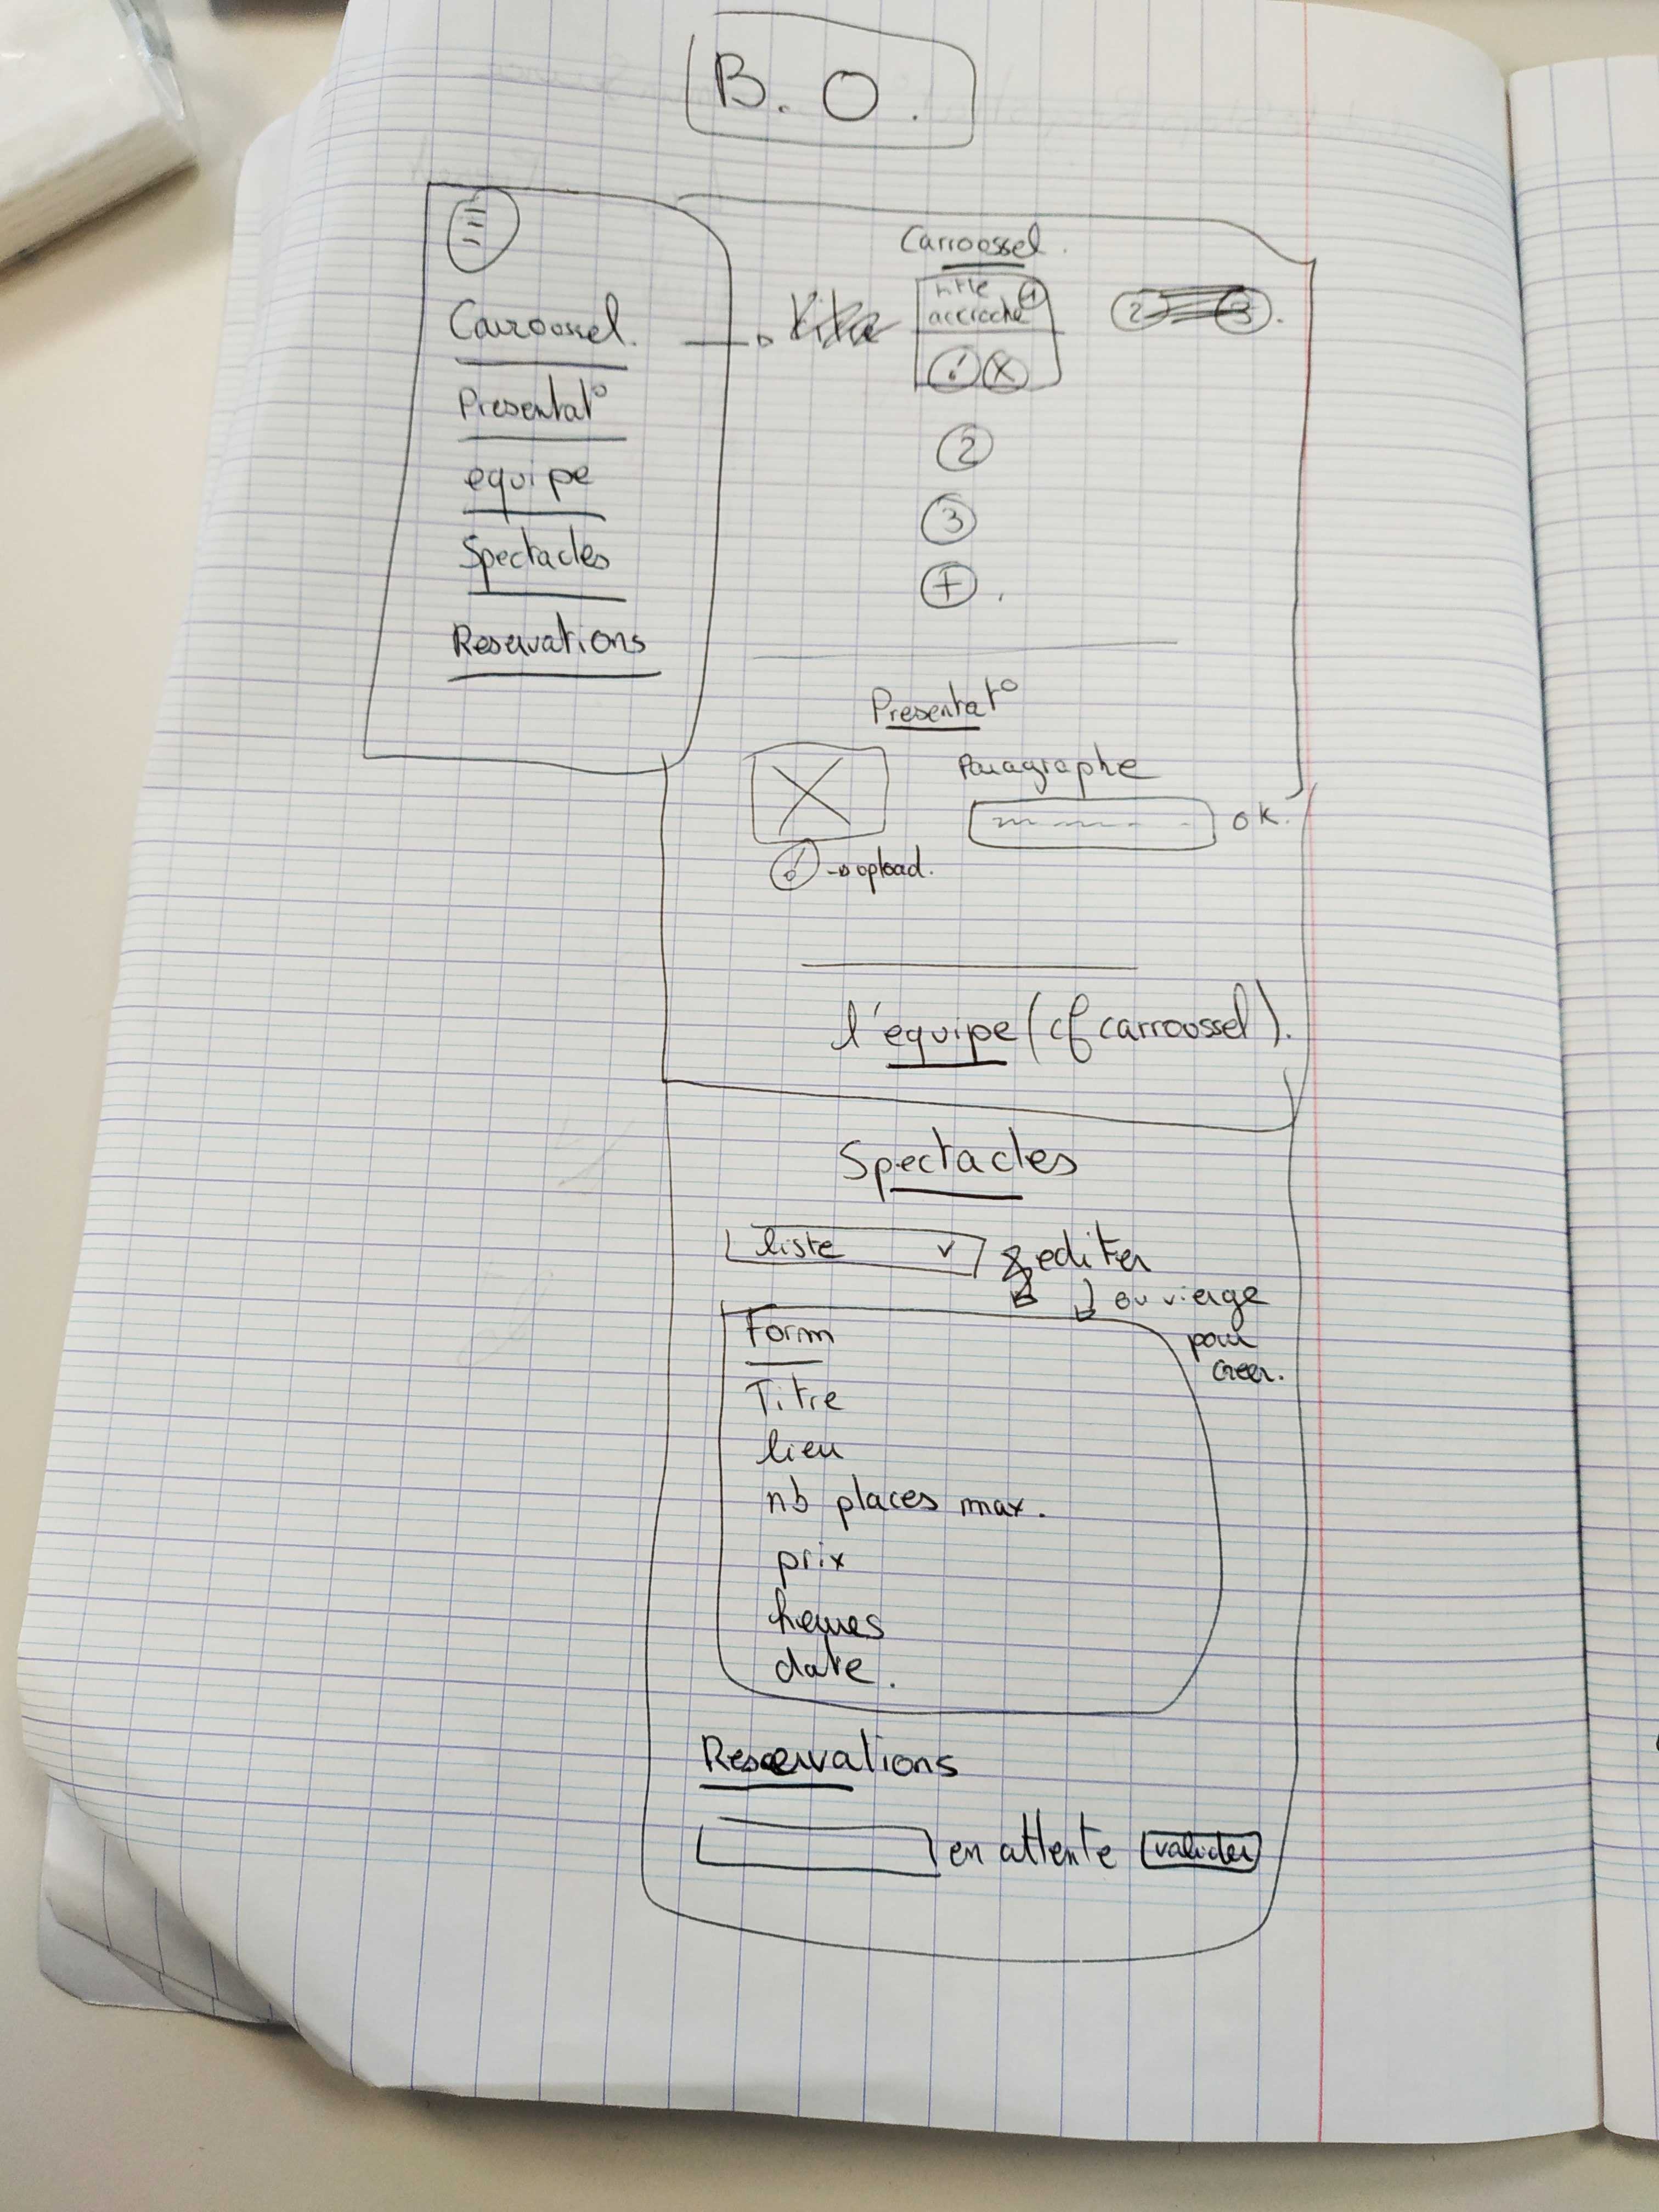 B.O.
Carroossel.
Presentat°
equipe
Spectacles
Reservations
Carroossel.
title 1
accroche
2 3.
2
3
+.
Presentat°
Paragraphe
OK.
→ upload.
l'equipe (cf carroossel).
Spectacles
liste v editer
ou vierge
pour
creer.
Form
Titre
lieu
nb places max.
prix
heures
date.
Reservations
en attente valider